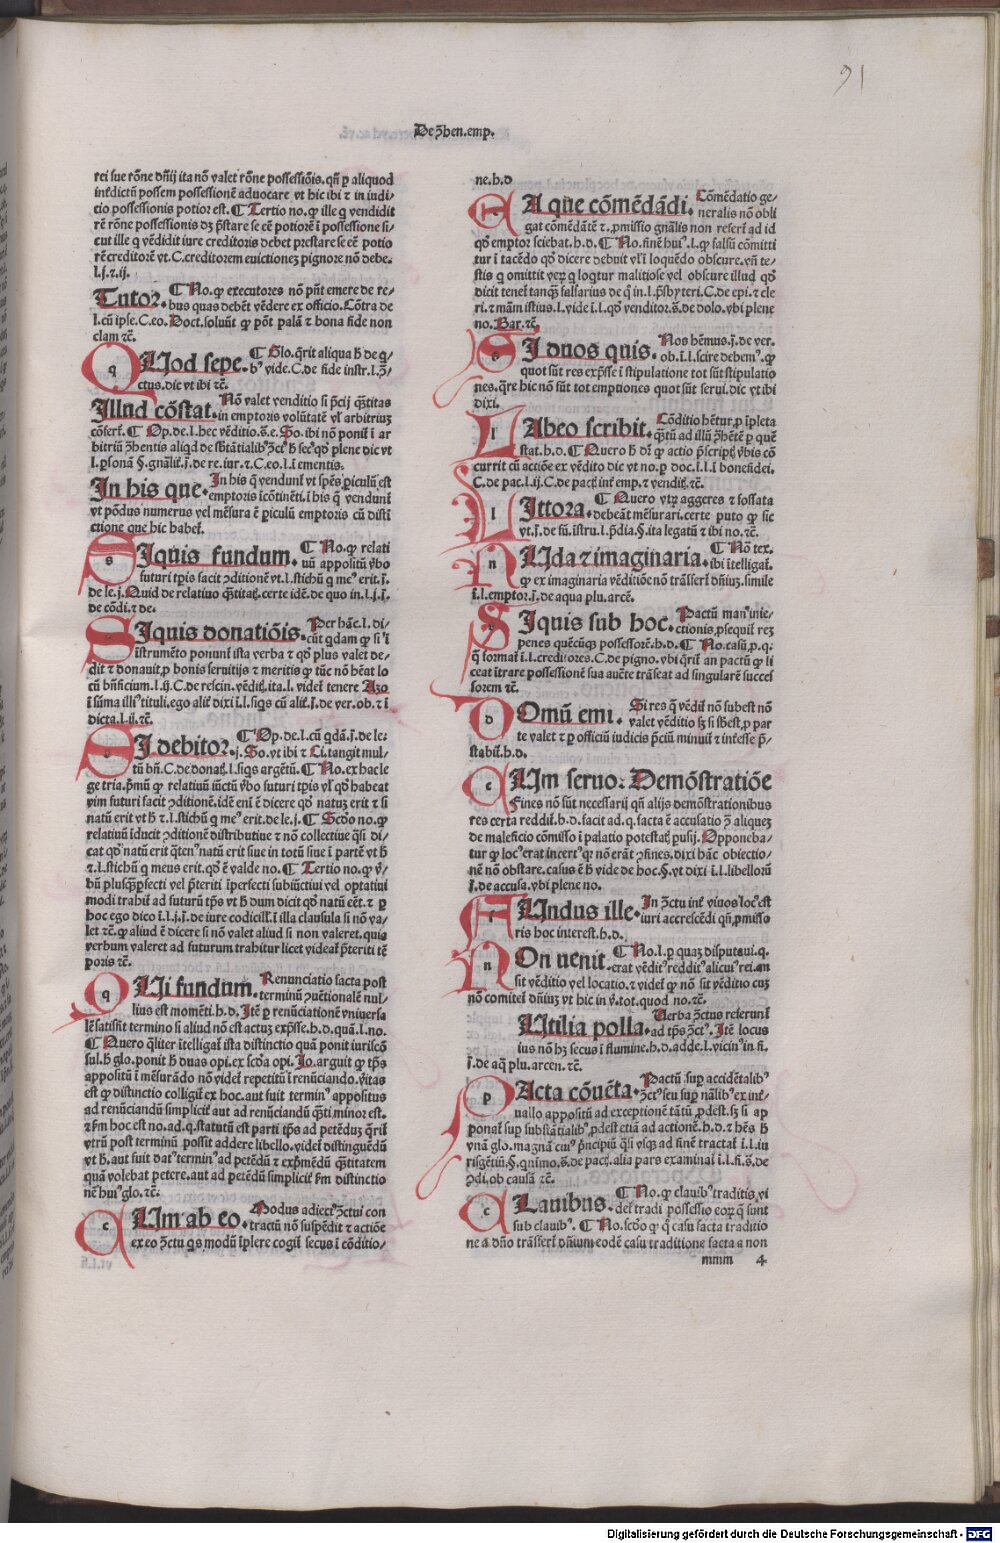 91
De ꝯhen.emp.
rei sue rõne dñij ita nõ valet rõne possessiõis.qñ p aliquod
interdictũ possem possessionẽ aduocare vt hic ibi ⁊ in iudi
cio possessionis potior est. ¶ Tertio no.ꝙ ille q vendidit
rẽ rõne possessionis dʒ p̃stare se eẽ potiorẽ ĩ possessione si
cut ille q vẽdidit iure creditoris debet prestare se eẽ potio
rẽ creditorẽ vt.C.creditorem euictionez pignorꝭ nõ debe.
l.j.⁊.ij.
Tutor. ¶ No.ꝙ executores nõ pñt emere de re-
bus quas debẽt vẽdere ex officio.Cõtra de
l.cũ ipse.C.eo.Doct.soluũt ꝙ põt palã ⁊ bona fide non
clam ⁊c̃.
q
QUod sepe. ¶ Glo.q̃rit aliqua ħ de q̃-
b⁹ vide.C.de fide instr.l.ꝯ̃-
ctus.dic vt ibi ⁊c̃.
Illud cõstat. Nõ valet venditio si p̃cij q̃titas
in emptoris volũtatẽ vl̓ arbitriuz
cõfert̃. ¶ Op.de.l.hec vẽditio.s̃.e.So.ibi nõ ponit̃ ĩ ar
bitriũ ꝯhentis aliqd de sb̃tãtialib⁹ ꝯct⁹ ħ sec⁹ qð plene dic vt
l.ꝑsonã §.gnãlit̃.j̃.de re.iur.⁊.C.eo.l.ĩ ementis.
In his que. In his q̃ vendunt̃ vt spẽs ꝑiculũ est
emptoris icõtinẽti.ĩ his q̃ vendunt̃
vt põdus numerus vel mẽsura ẽ ꝑiculũ emptoris cũ disti
ctione que hic habet̃.
s
SIquis fundum. ¶ No.ꝙ relati
uũ appositũ ṽbo
futuri tp̃is facit ꝯditionẽ vt.l.stichũ q̃ me⁹ erit.j̃.
de le.j.Quid de relatiuo q̃titatꝭ.certe idẽ.de quo in.l.j.j̃.
de cõdi.⁊ de.
SIquis donatiõis. Per hãc.l.di-
cũt qdam ꝙ si ĩ
ĩstrumẽto ponunt̃ ista verba ⁊ qð plus valet de-
dit ⁊ donauit ꝓ bonis seruitijs ⁊ meritis ꝙ tũc nõ hẽat lo
cũ bñficium.l.ij.C.de rescin.vẽditꝭ.ita.l. videt̃ tenere Azo
ĩ sũma illi⁹ tituli.ego alit̃ dixi ĩ.l.siqs cũ alit̃.j̃.de ver.ob.⁊ ĩ
dicta.l.ij.⁊c̃.
SI debitor. ¶ Op.de.l.cũ qdã.j̃.de le:
j.So.vt ibi ⁊ Ci.tangit mul-
tũ bñ.C.de donatꝭ.l.siqs argẽtũ. ¶ No.ex hac le
ge tria.p̃mũ ꝙ relatiuũ iũctũ ṽbo futuri tp̃is vl̓ qð habeat
vim futuri facit ꝯditionẽ.idẽ eni̓ ẽ dicere qð natuʒ erit ⁊ si
natũ erit vt ħ ⁊.l.stichũ q̃ me⁹ erit.de le.j. ¶ Scðo no.ꝙ
relatiuũ ĩducit ꝯditionẽ distributiue ⁊ nõ collectiue q̃si di-
cat qð natũ erit q̃ten⁹ natũ erit siue in totũ siue ĩ partẽ vt ħ
⁊.l.stichũ q̃ meus erit.qð ẽ valde no. ¶ Tertio no.ꝙ ṽ-
bũ plusq̃ꝑfecti vel p̃teriti ĩperfecti subiũctiui vel optatiui
modi trahit̃ ad futurũ tp̃s vt ħ dum dicit qð natũ eẽt.⁊ ꝑ
hoc ego dico ĩ.l.j.j̃.de iure codicill̓.ĩ illa clausula si nõ va-
let ⁊c̃.ꝙ aliud ẽ dicere si nõ valet aliud si non valeret.quia
verbum valeret ad futurum trahitur licet videat̃ p̃teriti tẽ
poris ⁊c̃.
q
QUi fundum. Renunciatio facta post
terminũ ꝯuẽtionalẽ nul-
lius est momẽti.h.d. Itẽ ꝑ renũciationẽ vniuersa
lẽ satisfit̃ termino si aliud nõ est actuʒ exp̃sse.h.d.quã.l.no.
¶ Quero qliter ĩtelligat̃ ista distinctio quã ponit iuriscõ
sul.ħ glo.ponit ħ duas opi.ex scða opi. Jo.arguit ꝙ tp̃s
appositũ ĩ mẽsurãdo nõ videt̃ repetitũ ĩ renũciando.v̓itas
est ꝙ distinctio colligit̃ ex hoc.aut fuit termin⁹ appositus
ad renũciandũ simplicit̃ aut ad renũciandũ q̃titi minor est.
⁊ fm̃ hoc est no.ad.q.statutũ est parti tp̃s ad petẽduʒ q̃rit̃
vtrũ post terminũ possit addere libello.videt̃ distinguẽdũ
vt ħ.aut fuit dat⁹ termin⁹ ad petẽdũ ⁊ exp̃mẽdũ q̃titatem
quã volebat petere.aut ad petẽdũ simplicit̃ fm̃ distinctio
nẽ hui⁹ glo.⁊c̃.
c
CUm ab eo. Modus adiect⁹ ꝯctui con
tractũ nõ suspẽdit ⁊ actiõe
ex eo ꝯctu qs modũ ĩplere cogit̃ secus ĩ cõditio-
ne.h.d
EA que cõmẽdãdi. Cõmẽdatio ge-
neralis nõ obli
gat cõmẽdãtẽ ⁊.ꝓmissio gnãlis non refert̃ ad id
qð emptor sciebat.h.d. ¶ No.finẽ hui⁹.l.ꝙ falsũ cõmitti
tur ĩ tacẽdo qð dicere debuit vl̓ ĩ loquẽdo obscure.vñ te-
stis q̃ omittit veʒ q̃ loqtur malitiose vel obscure illud qð
dicit tenet̃ tanqʒ falsarius de q̃ in.l.p̃sbyteri.C.de epi.⁊ cle
ri.⁊ mãm istius.l.vide ĩ.l.qð venditor.s̃.de dolo.vbi plene
no. Bar.⁊c̃.
s
SI duos quis. Nos hẽmus.j̃.de ver.
ob.ĩ.l.scire debem⁹.ꝙ
quot sũt res exp̃sse ĩ stipulatione tot sũt stipulatio
nes.q̃re hic nõ sũt tot emptiones quot sũt serui.dic vt ibi
dixi.
l
LAbeo scribit. Cõditio hẽtur ꝓ ĩpleta
q̃tũ ad illũ ꝯhẽtẽ ꝑ quẽ
stat.h.d. ¶ Quero ħ dũ ꝙ actio p̃scriptꝭ ṽbis cõ
currit cũ actiõe ex vẽdito dic vt no.ꝑ doc.ĩ.l.ĩ bonefidei.
C.de pac.l.ij.C.de pactꝭ int̃ emp.⁊ venditꝭ.⁊c̃.
l
LIttora. ¶ Quero vtrʒ aggeres ⁊ fossata
debeãt mẽsurari.certe puto ꝙ sic
vt.j̃.de fũ.istru.l.p̃dia.§.ita legatũ ⁊ ibi no.⁊c̃.
n
NUda ⁊ imaginaria. ¶ Nõ tex.
ibi ĩtelligat̃.
ꝙ ex imaginaria vẽditiõe nõ trãsfert̃ dñiuʒ.simile
ĩ.l.emptor.j̃.de aqua plu.arcẽ.
s
SIquis sub hoc. Pactũ man⁹ inie-
ctionis.ꝓsequit̃ reʒ
penes quẽcũqʒ possessorẽ.h.d. ¶ No.casũ.ꝓ.q.
q̃ format̃ ĩ.l.creditores.C.de pigno.vbi q̃rit̃ an pactũ ꝙ li
ceat ĩtrare possessionẽ sua aucte trãseat ad singularẽ succes
sorem ⁊c̃.
d
DOmũ emi. Si res q̃ vẽdit̃ nõ subest nõ
valet vẽditio sʒ si sb̃est ꝓ par
te valet ⁊ ꝑ officiũ iudicis p̃ciũ minuit̃ ⁊ intẽsse p̃-
stabit̃.h.d.
c
CUm seruo. Demõstratiõe
Fines nõ sũt necessarij qñ alijs demõstrationibus
res certa reddit̃.h.d.facit ad.q.facta ẽ accusatio ꝯ̃ aliqueʒ
de maleficio cõmisso ĩ palatio potestatꝭ pusij. Opponeba-
tur ꝙ loc⁹ erat incert⁹ qꝛ nõ erãt ꝯfines.dixi hãc obiectio-
nẽ nõ obstare.casus ẽ ħ vide de hoc.§.vt dixi ĩ.l.libellorũ
j̃.de accusa.vbi plene no.
f
FUndus ille. In ꝯctu int̃ viuos loc⁹ est
iuri accrescẽdi qñ ꝓmisso
ris hoc interest.h.d.
n
NOn uenit. ¶ No.l.ꝑ quaʒ disputaui.q.
erat vẽdit⁹ reddit⁹ alicui⁹ rei.an
sit vẽditio vel locatio.⁊ videt̃ ꝙ nõ sit vẽditio cuʒ
nõ comitet̃ dñiuʒ vt hic in ṽ.tot.quod no.⁊c̃.
Utilia polla. Uerba ꝯctus referunt̃
ad tp̃s ꝯct⁹. Itẽ locus
ius nõ hʒ secus ĩ flumine.h.d.adde.l.vicin⁹ in fi.
j̃.de aq̃ plu.arcen.⁊c̃.
p
PActa cõuẽta. Pactũ sup̃ accidẽtalib⁹
ꝯct⁹ seu sup̃ nãlib⁹ ex int̃-
uallo appositũ ad exceptionẽ tãtũ ꝓdest.sʒ si ap
ponat̃ sup̃ substãtialib⁹.ꝓdest etiã ad actionẽ.h.d.⁊ hẽs ħ
vnã glo.magnã cui⁹ p̃ncipiũ q̃si vsqʒ ad finẽ tractat̃ ĩ.l.iu
risgẽtiũ.§.qnimo.s̃.de pactꝭ.alia pars examinat̃ ĩ.l.fi.s̃.de
ꝯdi.ob causã ⁊c̃.
c
CLauibus. ¶ No.ꝙ clauib⁹ traditis.vi
det̃ tradi possessio eoꝝ q̃ sunt
sub clauib⁹. ¶ No.scðo ꝙ q̃ casu facta traditio
ne a dño trãsfert̃ dñium eodẽ casu traditione facta a non
mmm 4
Digitalisierung gefördert durch die Deutsche Forschungsgemeinschaft - DFG